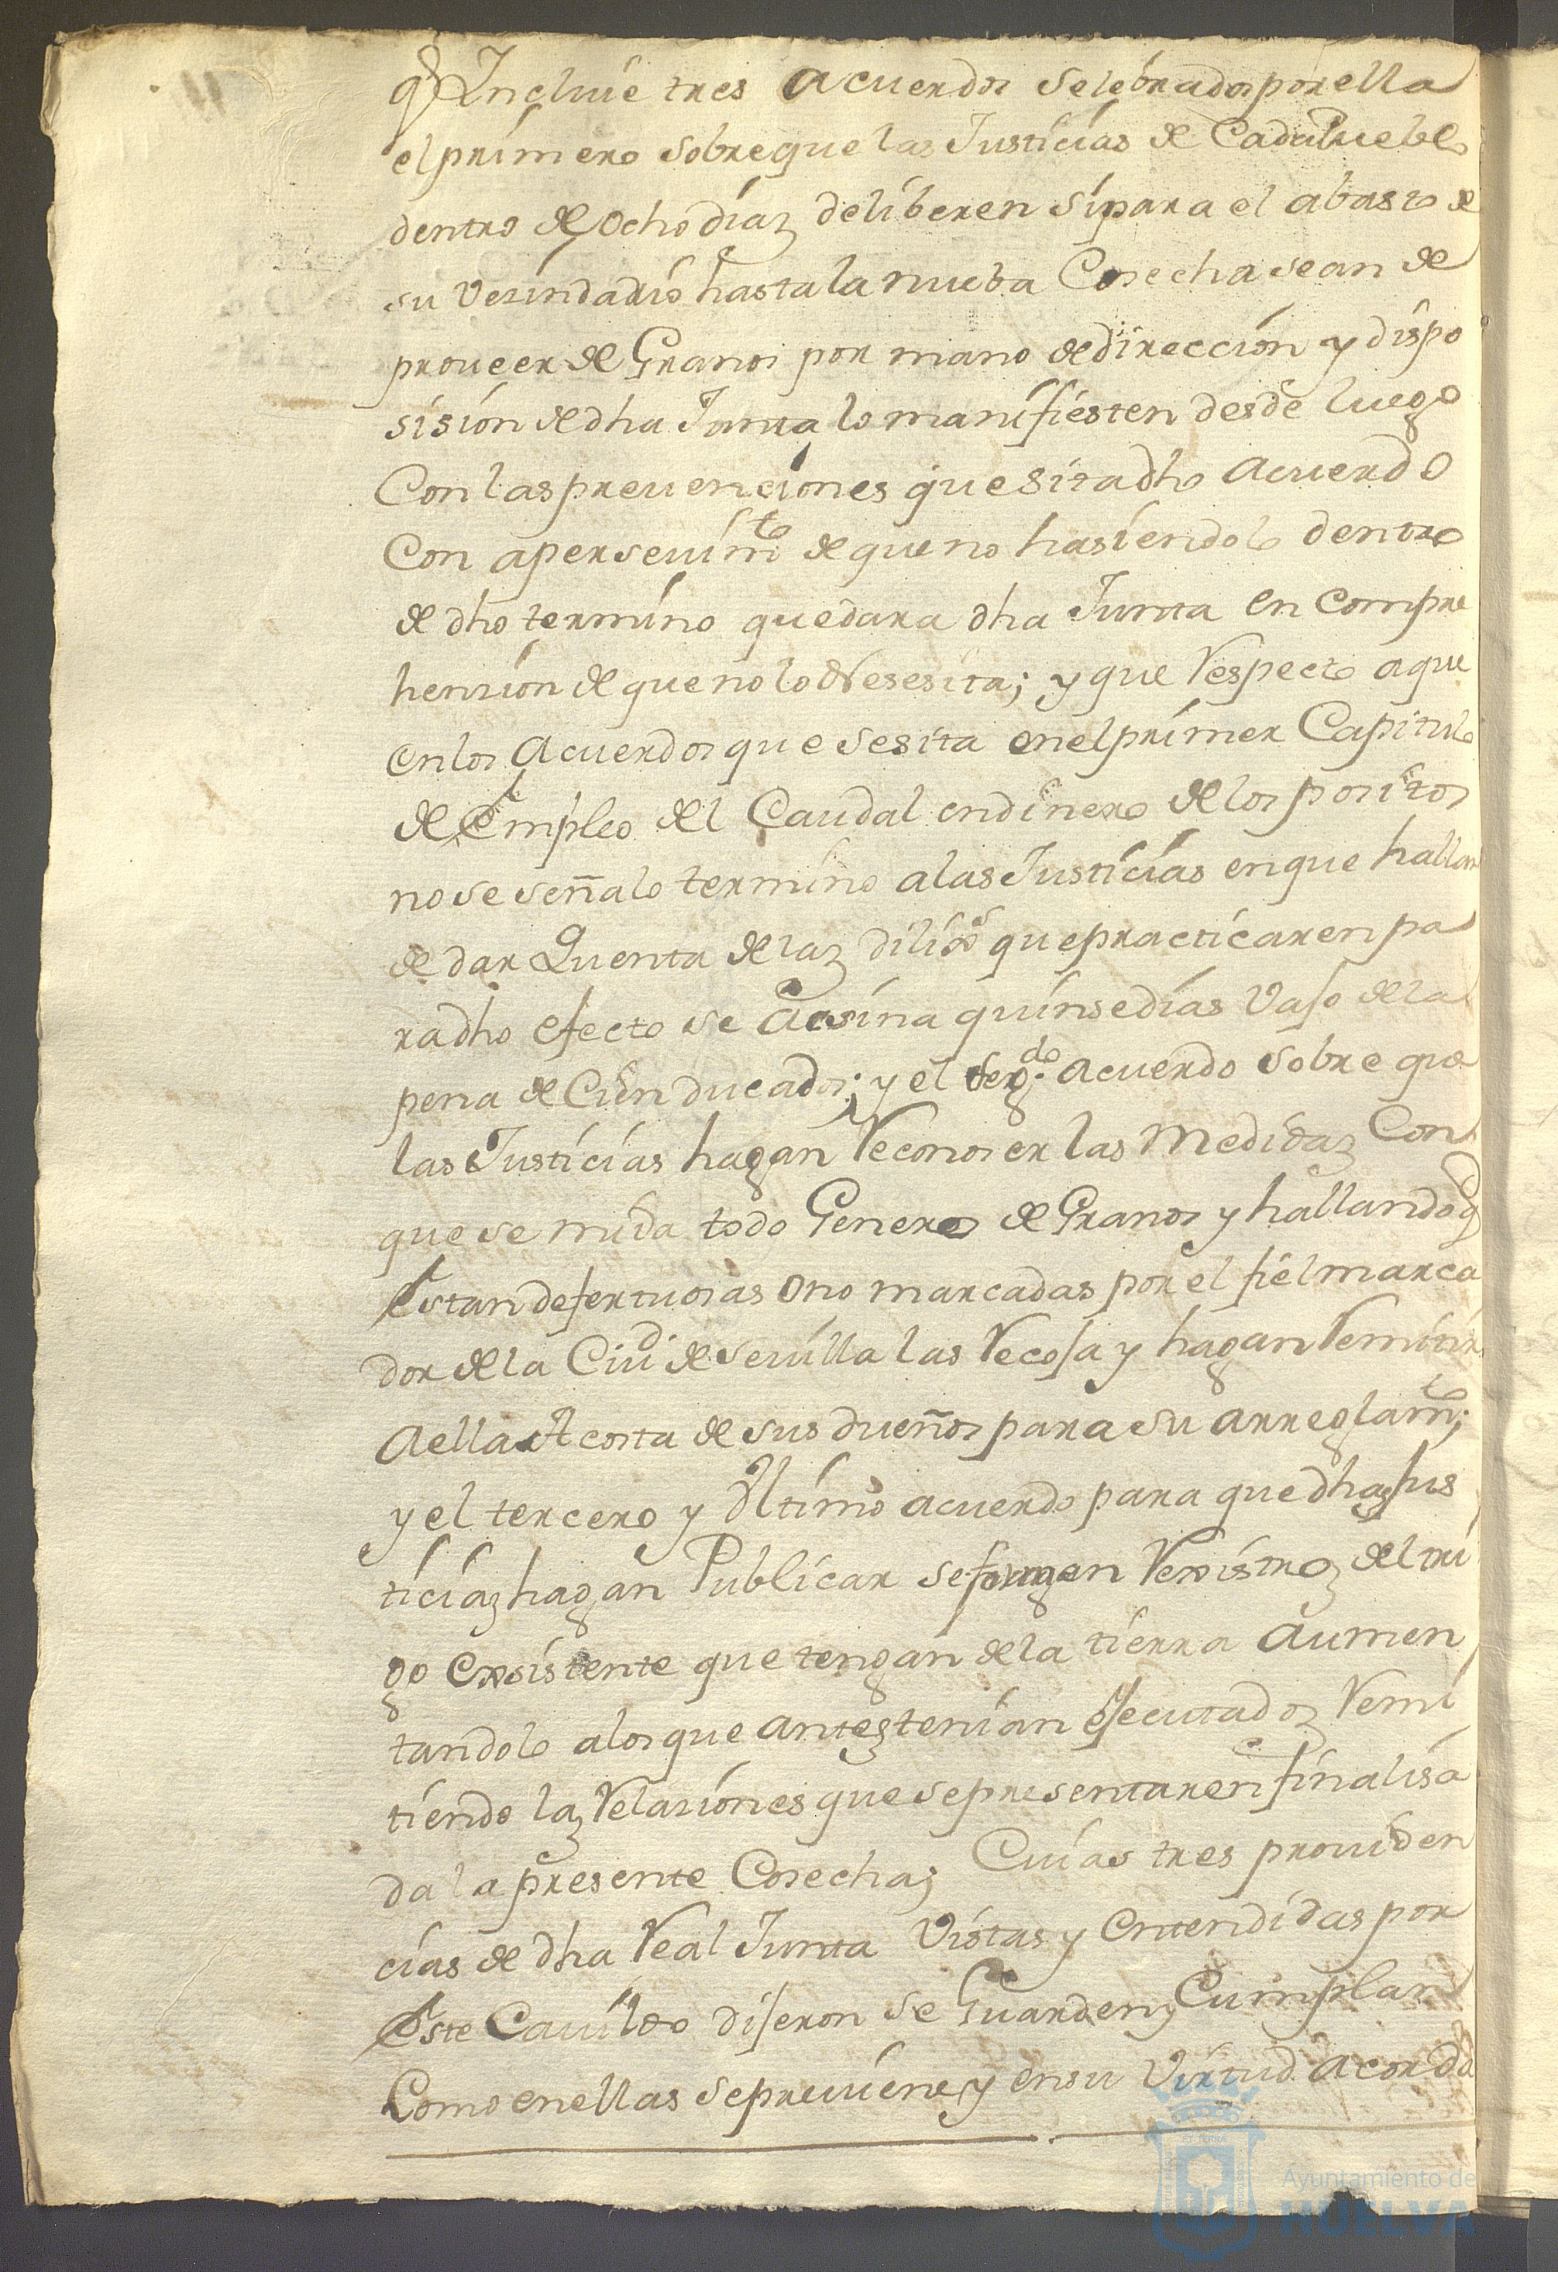 q.e Incluie tres acuerdos selebrados por ella
el primero sobre que las Justicias de Cada Pueblo
dentro de Ocho diaz deliberen si para el abasto de
su Vesindario hasta la nueba Cosecha se an de
proveer de Granos por mano de direccion y dispo
sision de dha Junta lo manifiesten desde luego
Con las prevenciones que sita dho acuerdo
Con apersevimto de que no hasiendolo dentro
de dho termino quedara dha Junta en compre
hension de que no lo Nesesita; y que respecto a que
en los Acuerdos que se sita en el primer Capitulo
de Empleo del Caudal en dinero de los positos
no se señalo termino a las Justicias en que hallan
de dar Quenta de laz dilixs que practicaren pa
ra dho efecto se asina quinse dias vajo de la
pena de Cien ducados; y el segdo acuerdo sobre que
las Justicias hagan reconoser las Medidaz Con
que se mida todo Genero de Granos y hallando q.e
Estan defectuosas o no marcadas por el fiel marca
dor de la Ciud de Sevilla las recoja y hagan remitir
a ella A costa de sus dueños para su arreglamto;
y el tercero y Ultimo acuerdo para que dhaz Jus
ticiaz hagan Publicar se formen rexistroz del tri
go exsistente que tengan de la tierra aumen
tandolo a los que antez tenian ejecutadoz remi
tiendo laz relasiones que se presentaren finalisa
da la presente Cosecha; Cuias tres providen
cias de dha real Junta Vistas y entendidas por
Este Cavildo dijeron se Guarden y Cumplan
Como en ellas se previene y en su Virtud acordo
Ayuntamiento de
HUELVA